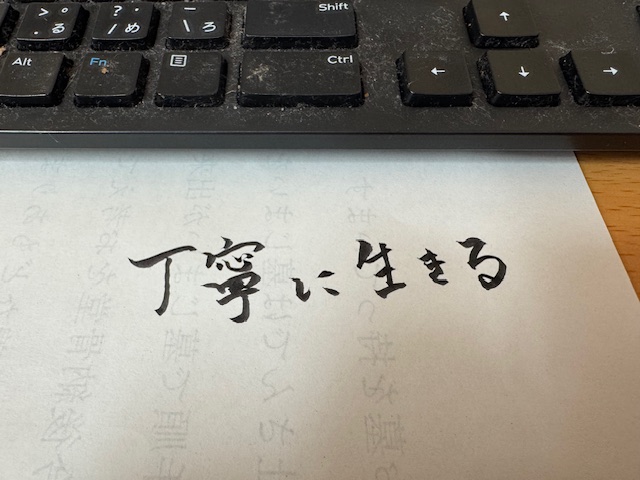 > 。 ? ・ _
. る / め \ ろ Shift ↑
Alt Fn Ctrl ← ↓ →
丁寧に生きる